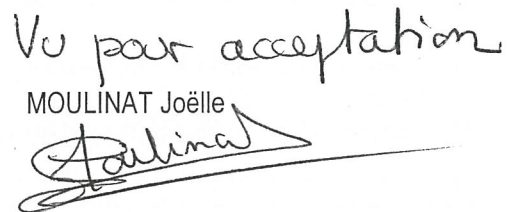 Vu pour acceptation
MOULINAT Joëlle
Moulinat